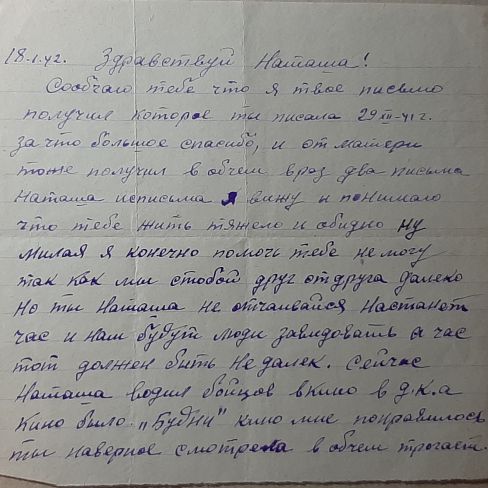 18.1.42. Здравствуй Наташа!
Сообчаю тебе что я твое письмо
получил которое ты писала 29 XII-41 г.
за что большое спасибо, и от матери
тоже получил в обчем враз два письма
Наташа исписьма я вижу и понимаю
что тебе жить тяжело и обидно ну
милая я конечно помочь тебе не могу
так как мы стобой друг отдруга далеко
но ты Наташа не отчаивайся настанет
час и нам будут люди завидовать а час
тот должен быть недалек. Сейчас
Наташа водил бойцов вкино в д.к.а
кино было „Будни" кино мне понравилось
ты наверное смотрела в обчем трогает.